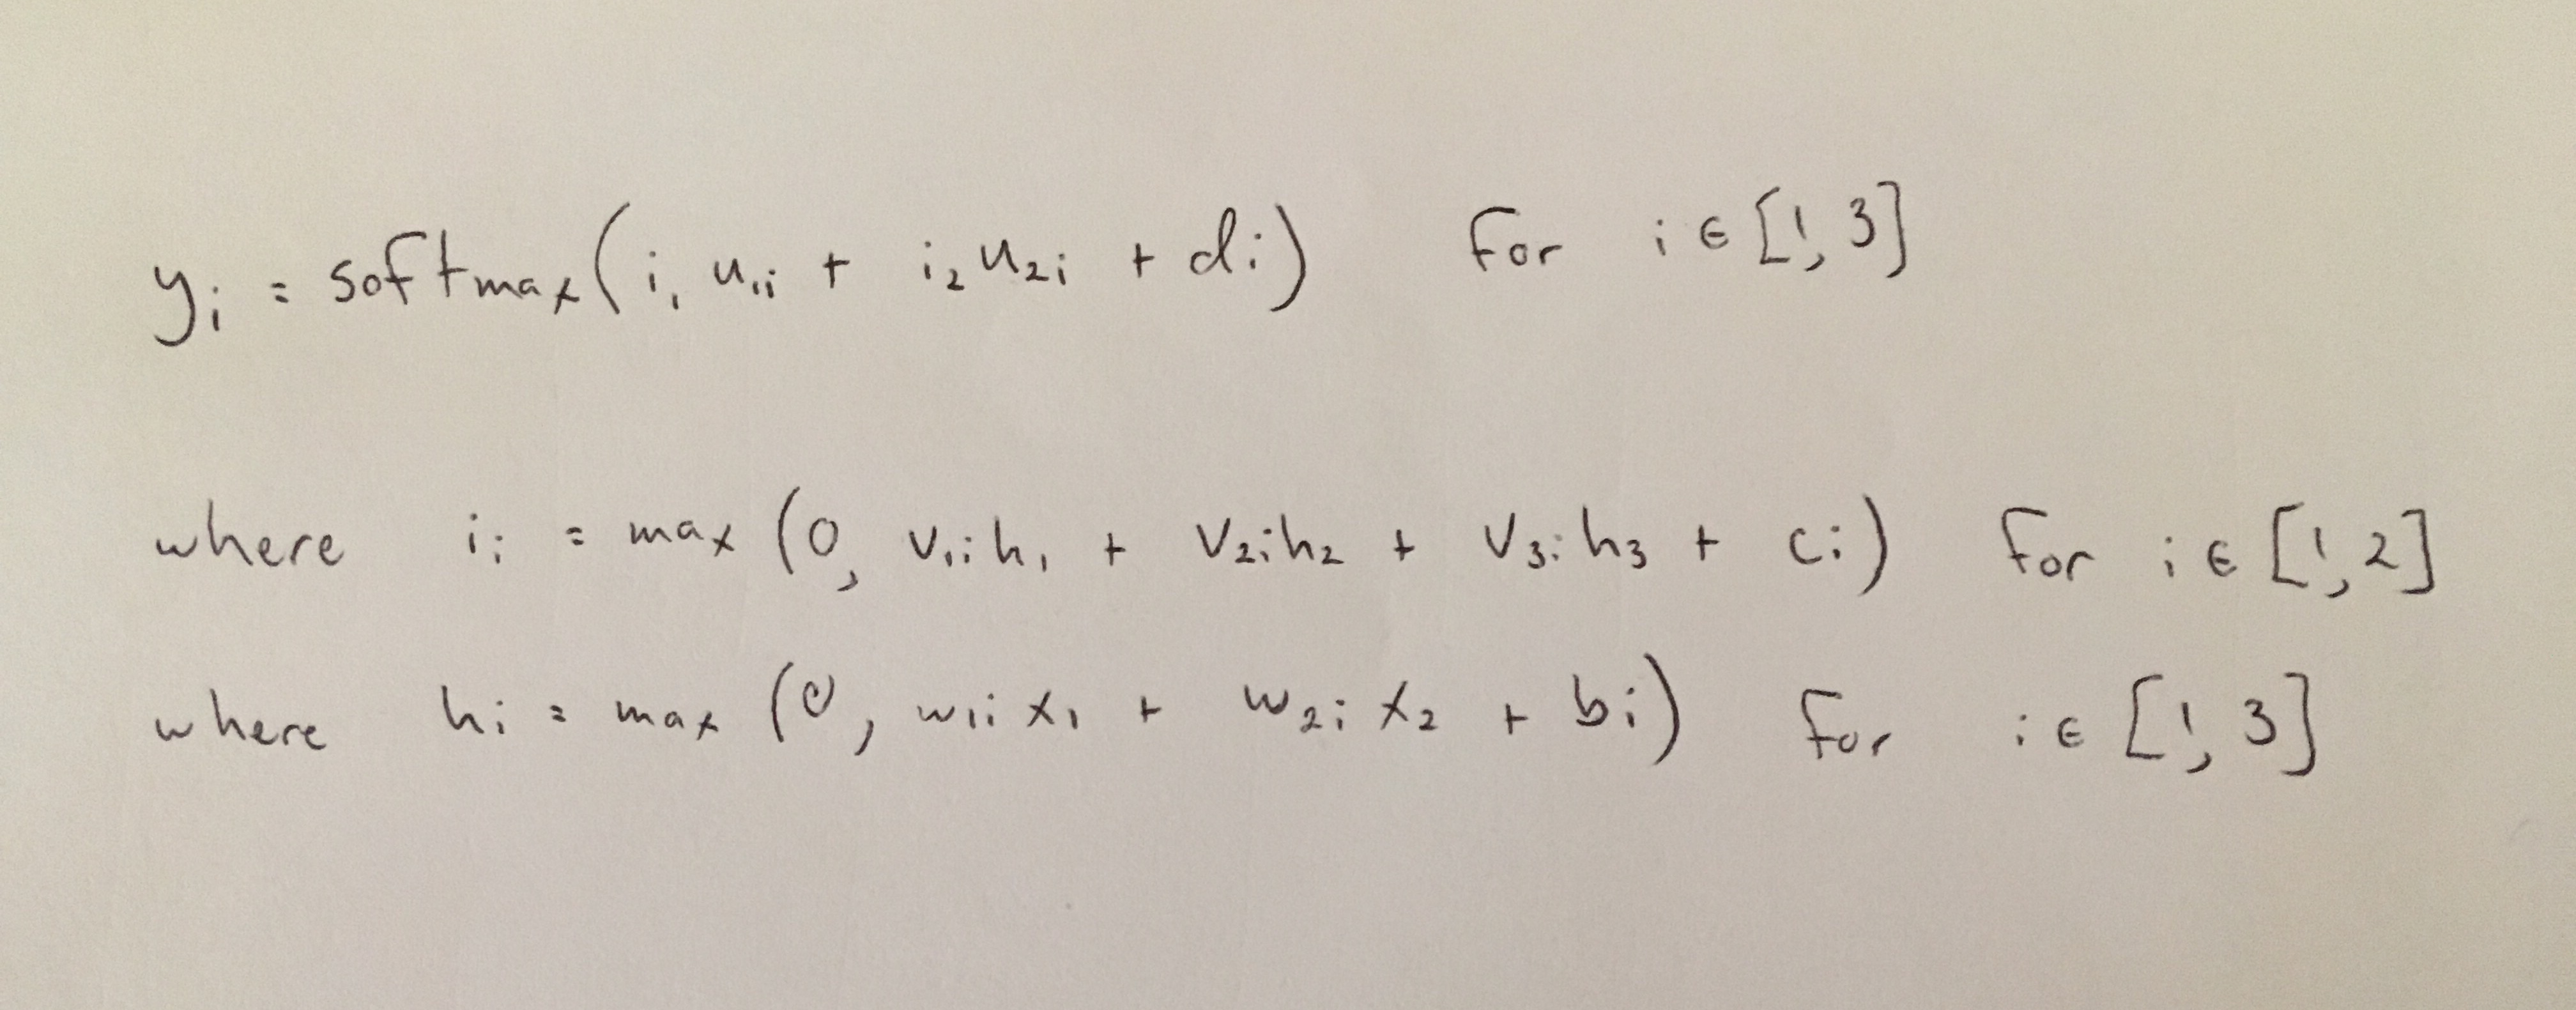 yi = softmax(i1 u1i + i2 u2i + di) for i ∈ [1, 3]
where ii = max (0, v1i h1 + v2i h2 + v3i h3 + ci) for i ∈ [1, 2]
where hi = max (0, w1i x1 + w2i x2 + bi) for i ∈ [1, 3]